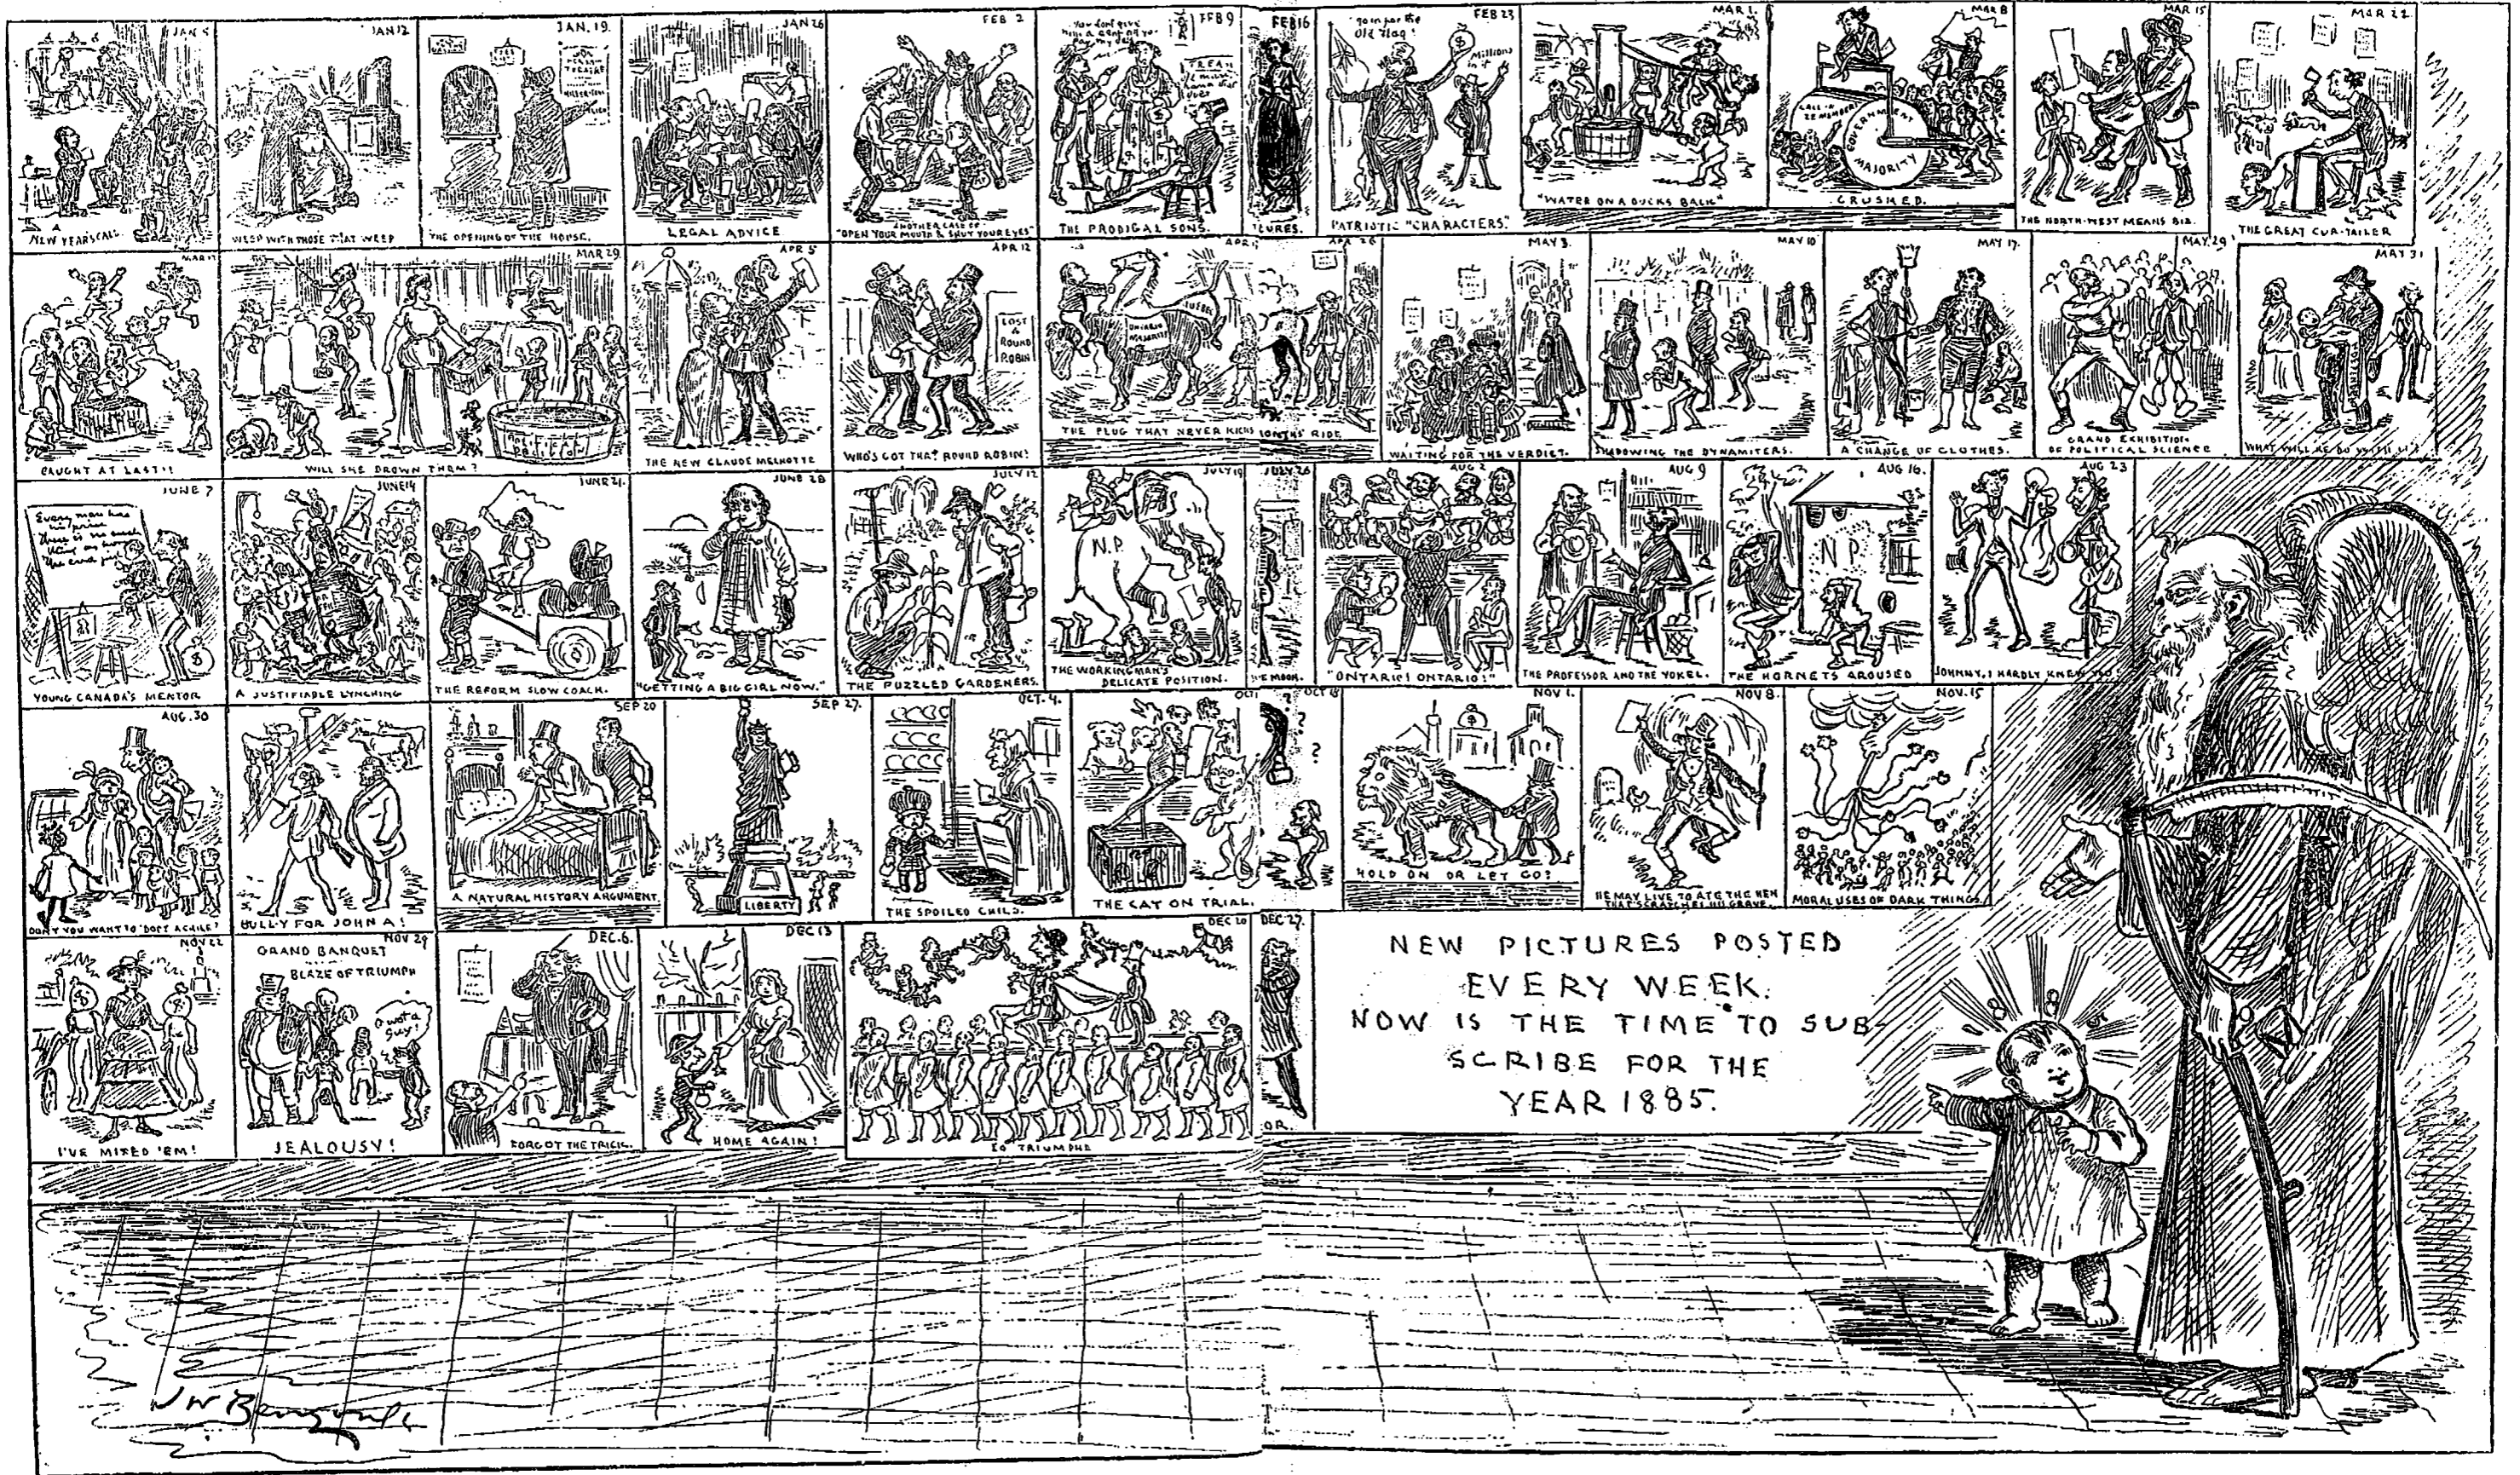 JAN 5
NEW YEARS CALL.
JAN 12
WEEP WITH THOSE THAT WEEP
JAN. 19.
THE OPENING OF THE HOUSE.
JAN 26
LEGAL ADVICE
FEB 2
ANOTHER CASE OF
"OPEN YOUR MOUTH & SHUT YOUR EYES"
FEB 9
You dont give
him a cent or you
pay my
THE PRODIGAL SONS.
FEB 16
CURES.
FEB 23
go in for the
Old Flag!
$
Millions
in it
PATRIOTIC "CHARACTERS."
MAR 1.
"WATER ON A DUCKS BACK"
MAR 8
CALL IN
GOVERNMENT
MAJORITY
CRUSHED.
MAR 15
THE NORTH-WEST MEANS BIZ.
MAR 22
THE GREAT CUR-TAILER
CAUGHT AT LAST!!
MAR 29
POLITICAL
PERDITION
WILL SHE DROWN THEM?
APR 5
THE NEW CLAUDE MELNOTTE
APR 12
LOST
A
ROUND
ROBIN
WHO'S GOT THAT ROUND ROBIN?
ONTARIO
MAJORITY
THE PLUG THAT NEVER KICKS
APR 26
MONTHS' RIDE
MAY 3.
WAITING FOR THE VERDICT.
MAY 10
SHADOWING THE DYNAMITERS.
MAY 17.
A CHANGE OF CLOTHES.
MAY. 29
GRAND EXHIBITION
OF POLITICAL SCIENCE
MAY 31
WHAT WILL HE DO WITH IT?
JUNE 7
Every man has
his price
There is no such
thing as
The end
$
YOUNG CANADA'S MENTOR
JUNE 14
A JUSTIFIABLE LYNCHING
JUNE 21.
THE REFORM SLOW COACH.
JUNE 28
"GETTING A BIG GIRL NOW."
JULY 12
THE PUZZLED GARDENERS.
JULY 19
N.P.
THE WORKINGMAN'S
DELICATE POSITION.
JULY 26
THE MOON.
AUG 2
"ONTARIO! ONTARIO!"
AUG 9
THE PROFESSOR AND THE YOKEL.
AUG 16.
N.P.
THE HORNETS AROUSED
AUG 23
JOHNNY, I HARDLY KNEW YOU
AUG. 30
DON'T YOU WANT TO 'DOPT A CHILE?
BULLY FOR JOHN A!
SEP 20
A NATURAL HISTORY ARGUMENT.
SEP 27.
LIBERTY
OCT. 4.
THE SPOILED CHILD.
THE CAT ON TRIAL.
OCT 18
?
?
NOV 1.
HOLD ON OR LET GO?
NOV 8.
HE MAY LIVE TO ATE THE HEN
THAT SCRATCHES HIS GRAVE.
NOV. 15
MORAL USES OF DARK THINGS.
NOV 22
$
$
I'VE MIXED 'EM!
NOV 29
GRAND BANQUET
BLAZE OF TRIUMPH
O wot a
Guy!
JEALOUSY!
DEC. 6.
FORGOT THE TRICK.
DEC 13
HOME AGAIN!
DEC 20
IO TRIUMPHE
DEC 27.
OR.
NEW PICTURES POSTED
EVERY WEEK.
NOW IS THE TIME TO SUB-
SCRIBE FOR THE
YEAR 1885.
1885
J W Bengough